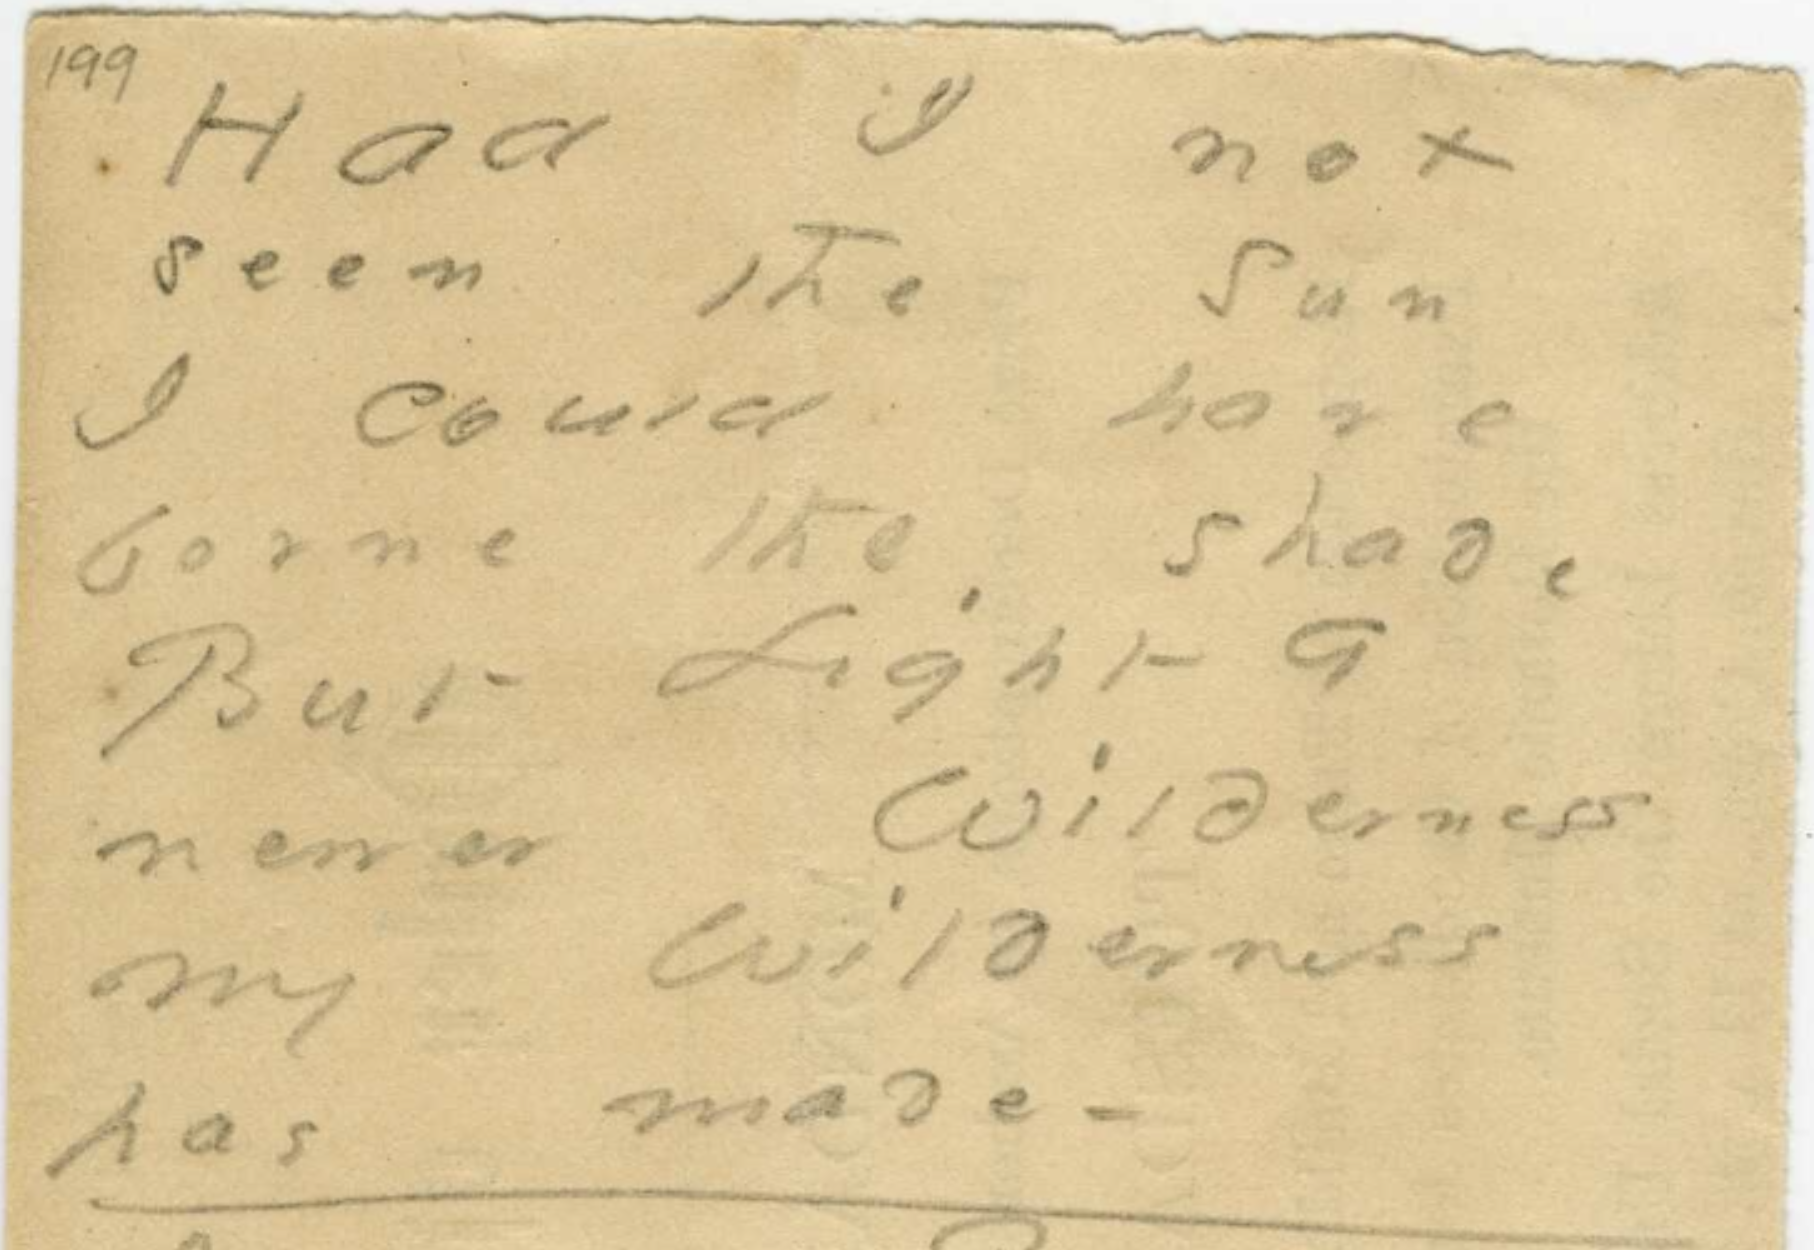 199
Had I not
seen the Sun
I could have
borne the shade
But Light a
newer Wilderness
My Wilderness
has made -